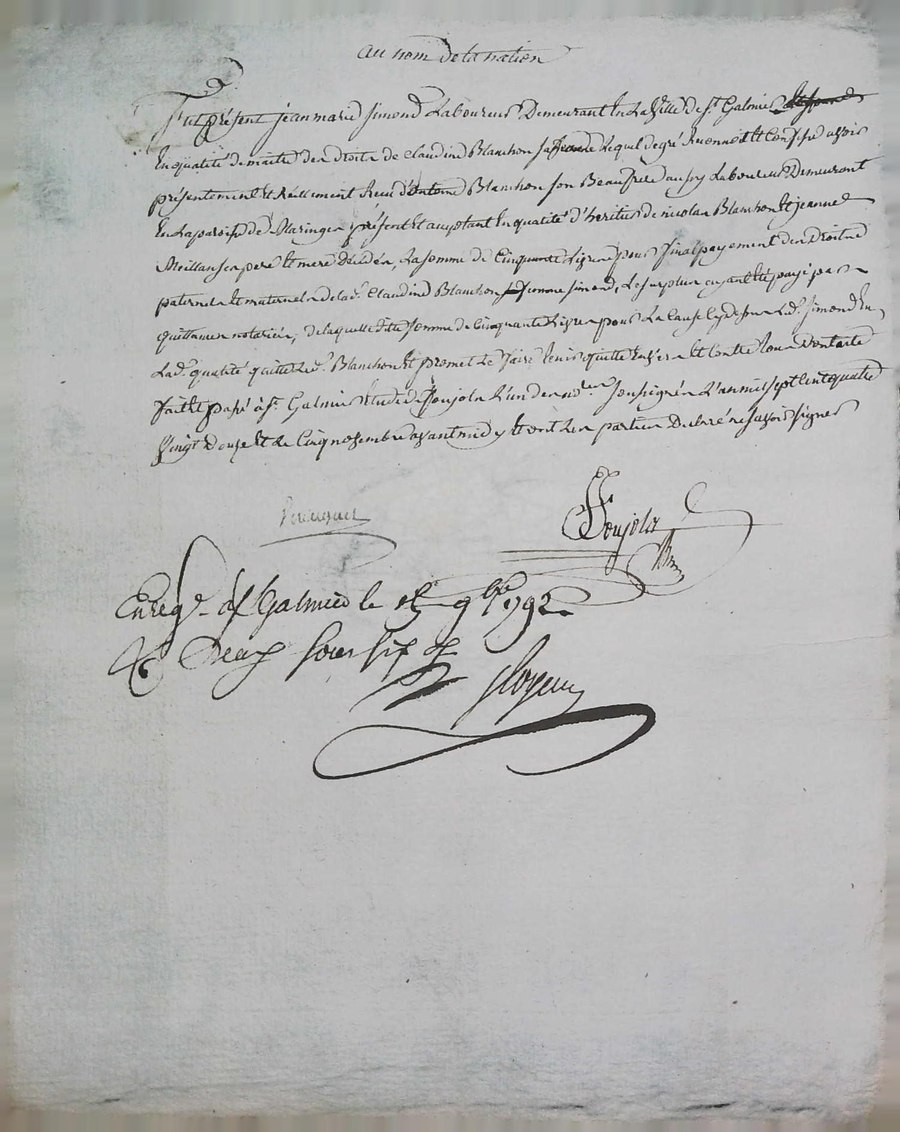 au nom de la nation
Fut présent jean marie simond Laboureur Demeurant En La Ville de st. Galmier
En qualité de maitre des droits de claudine Blanchon sa femme Lequel de gré a reconnu Et Confessé avoir
présentement Et Réellement Reçu d'antoine Blanchon son Beaufrere aussy Laboureur Demeurant
En La paroisse de Maringes présent Et acceptant En qualité d'heritier de nicolas Blanchon Et jeanne
ses pere Et mere décédés, La somme de Cinquante Livres pour final payement des Droits
paternels Et maternels de lad. Claudine Blanchon femme simond, Le surplus ayant Eté payé par
quittances notariées, de laquelle ditte somme de Cinquante Livres pour La Cause Led. simond En
Lad. qualité quitte Led. Blanchon Et promet Le faire tenir quitte Envers Et Contre tous Dont acte
fait Et passé à st. Galmier Etude de Poujola L'un des nores. soussignés L'an mil sept Cent quatre
Vingt Douze Et Le Cinq novembre avant midy Et ont Les parties Declaré ne savoir signer
Poujola
Enregt. a st Galmier le 15 9bre 1792
Deux sous six